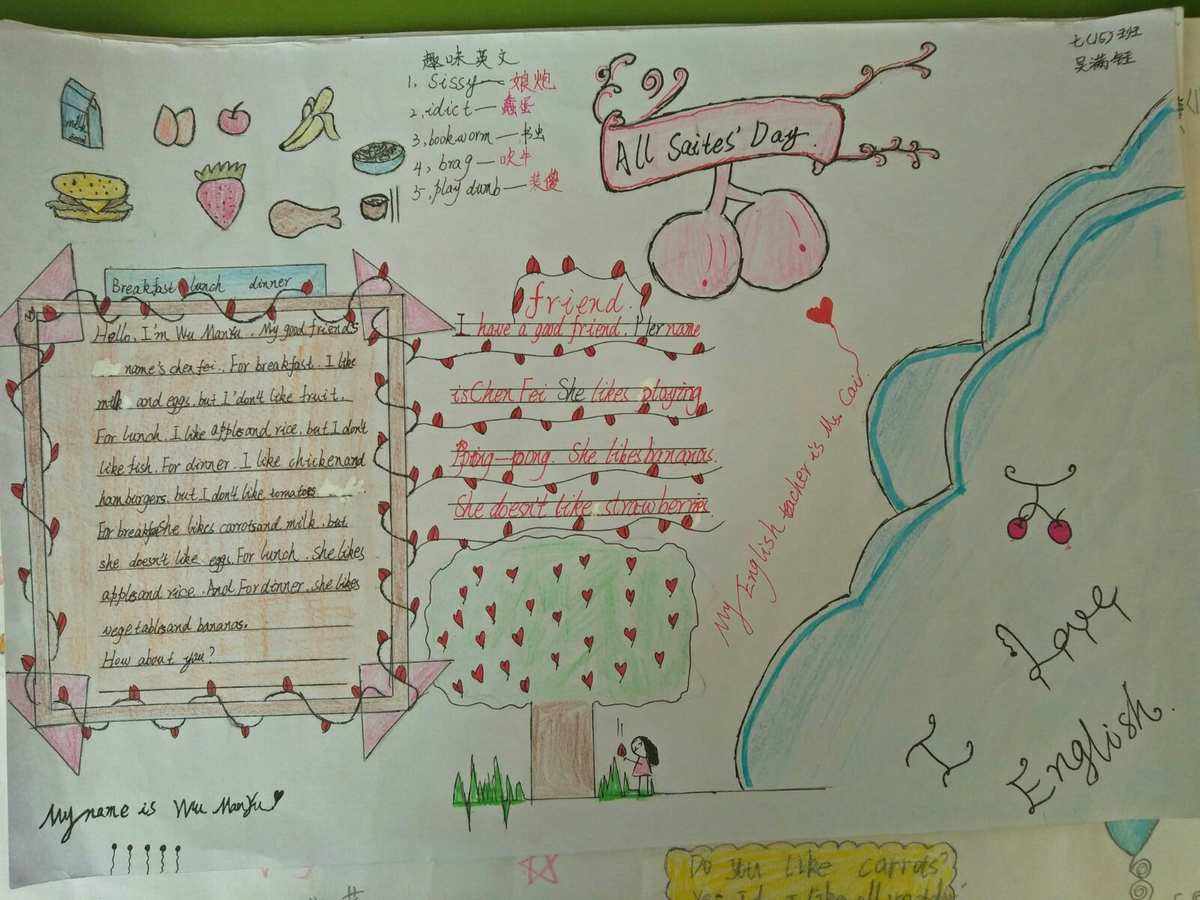 七(15)班
吴满钰
趣味英文
1. Sissy—娘炮
2. idict—蠢蛋
3. bookworm—书虫
4. brag—吹牛
5. play dumb—装傻
milk
All Saites' Day.
Breakfast lunch dinner
Hello, I'm Wu ManYu. My good friends
name's chen fei. For breakfast. I like
milk and eggs. but I don't like fruit.
For lunch. I like apples and rice. but I don't
like fish. For dinner. I like chicken and
hamburgers. but I don't like tomatoes
For breakfast She likes carrots and milk. but
she doesn't like eggs. For lunch. She likes
apples and rice. And For dinner. she likes
vegetables and bananas.
How about you?
friend.
I have a good friend. Her name
is Chen Fei She likes playing
Ping-pong. She likes bananas.
She doesn't like strawberries
My English teacher is Ms. Cai
I Love
English.
My name is Wu ManYu
Do you like carrots?